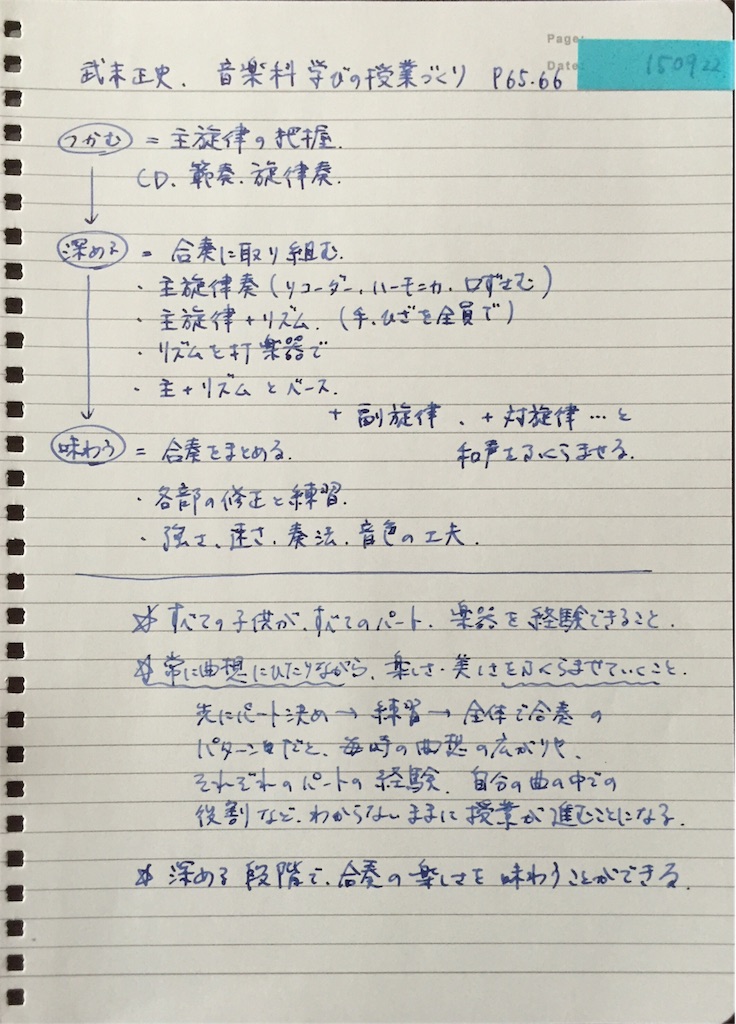 Page:
Date:
150922
武末正史. 音楽科 学びの授業づくり P65.66
つかむ = 主旋律の把握.
CD、範奏、旋律奏.
深める = 合奏に取り組む.
・主旋律奏(リコーダー、ハーモニカ、口ずさむ)
・主旋律+リズム. (手、ひざを全員で)
・リズムを打楽器で
・主+リズムとベース.
+副旋律、+対旋律…と
味わう = 合奏をまとめる.
和声をふくらませる.
・各部の修正と練習.
・強さ、速さ、奏法、音色の工夫.
☆すべての子供が、すべてのパート、楽器を経験できること.
☆常に曲想にひたりながら、楽しさ・美しさをふくらませていくこと.
先にパート決め→練習→全体で合奏の
パターンだと、毎時の曲想の広がりや、
それぞれのパートの経験、自分の曲の中での
役割など、わからないままに授業が進むことになる.
☆深める段階で、合奏の楽しさを味わうことができる.